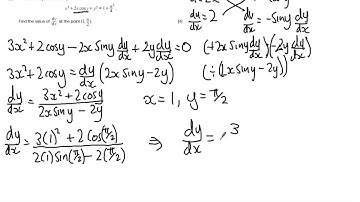 x³ + 2x cos y + y² = 1 + π²/4
Find the value of dy/dx at the point (1, π/2).
dy/dx = 2
dy/dx = -siny dy/dx
3x² + 2cosy - 2xsiny dy/dx + 2y dy/dx = 0 (+2xsiny dy/dx)(-2y dy/dx)
3x² + 2cosy = dy/dx (2xsiny - 2y) (÷(2xsiny - 2y))
dy/dx = 3x² + 2cosy / 2xsiny - 2y x = 1, y = π/2
dy/dx = 3(1)² + 2cos(π/2) / 2(1)sin(π/2) - 2(π/2) ⇒ dy/dx = 3